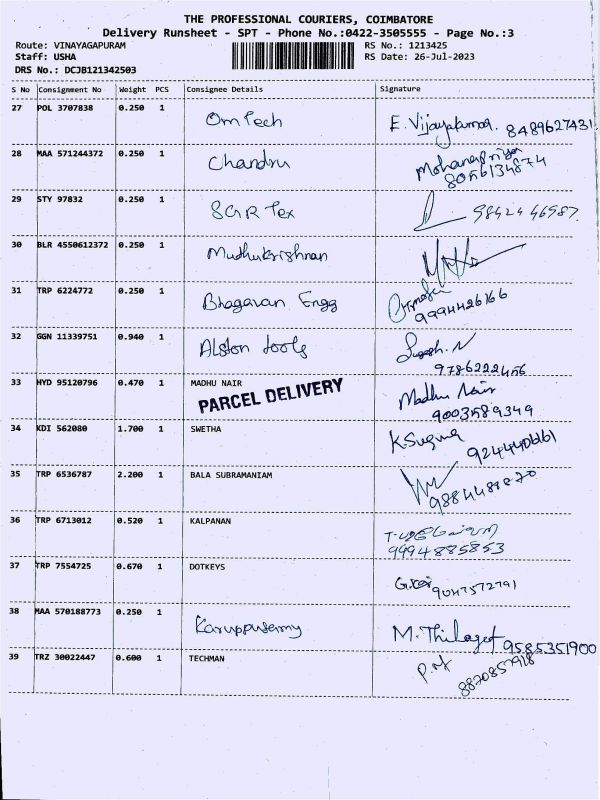 THE PROFESSIONAL COURIERS, COIMBATORE
Delivery Runsheet - SPT - Phone No.:0422-3505555 - Page No.:3
Route: VINAYAGAPURAM RS No.: 1213425
Staff: USHA RS Date: 26-Jul-2023
DRS No.: DCJB121342503
S No Consignment No Weight PCS Consignee Details Signature
27 POL 3707838 0.250 1 Om Tech E. Vijayakumar 8489627431
28 MAA 571244372 0.250 1 Chandru Mohanapriya
8056134874
29 STY 97832 0.250 1 SGR Tex 9842446987
30 BLR 4550612372 0.250 1 Mudhukrishnan
31 TRP 6224772 0.250 1 Bhagavan Engg
9994426166
32 GGN 11339751 0.940 1 Alston tools Sugesh. N
9786222456
33 HYD 95120796 0.470 1 MADHU NAIR Madhu Nair
PARCEL DELIVERY 9003589349
34 KDI 562080 1.700 1 SWETHA K. Suguna
35 TRP 6536787 2.200 1 BALA SUBRAMANIAM
36 TRP 6713012 0.520 1 KALPANAN
9994885853
37 TRP 7554725 0.670 1 DOTKEYS
38 MAA 570188773 0.250 1 Karuppusamy M. Thilagat 9585351900
39 TRZ 30022447 0.600 1 TECHMAN